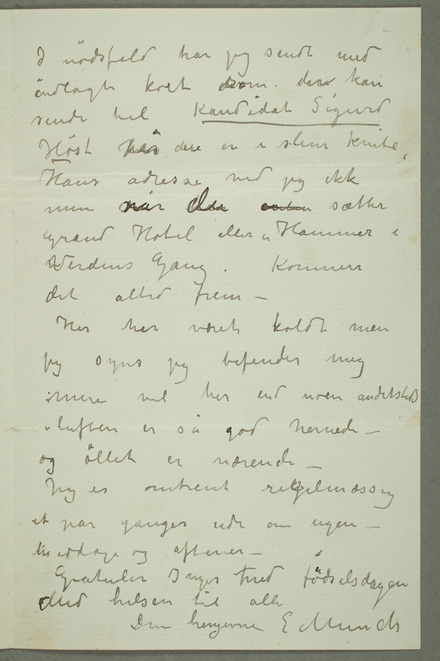 I nödsfald har jeg sendt med
indlagt kort som du kan
sende til Kandidat Sigurd
Höst når du er i slem knibe,
Hans adresse ved jeg ikk
men når du enten sætter
Grand Hotel eller Hammer i
Verdens Gang. Kommer
det altid frem –
Her har været koldt men
jeg synes jeg befinder mig
mere vel her end noen andetsteds
– luften er så god hernede –
og öllet er nærende –
Jeg er omtrent regelmæssig
et par ganger ude om ugen –
middage og aftener –
Gratuler Inger med födselsdagen
Med hilsen til alle
Din hengivne E Munch